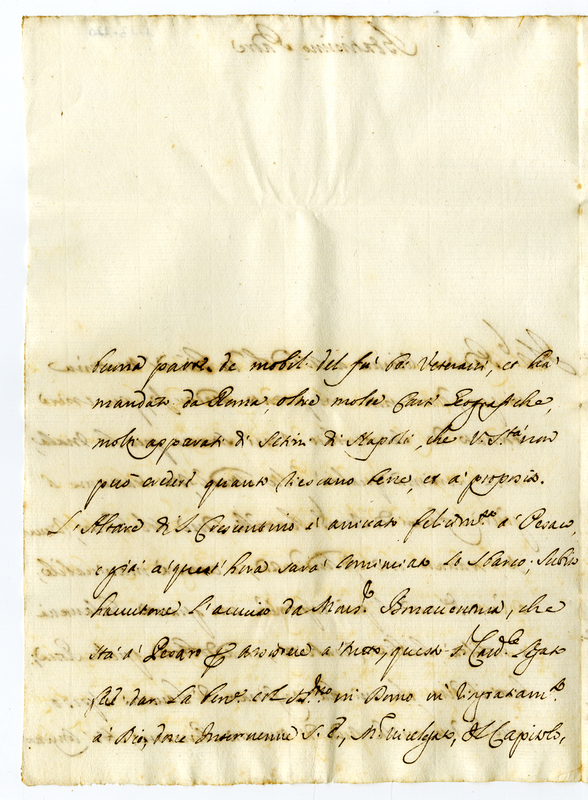 buona parte de mobili del fu Co: Veterani, et ha
mandato da Roma, oltre molte Carte Geografiche,
molti apparati di Setini di Napoli, che V. S.tà non
può credere quanto riescano bene, et a' proposito.
L'Altare di S. Crescentino è arrivato felicem.te a' Pesaro,
e già a' quest'hora sarà cominciato lo sbarco; subito
havutone l'avviso da Mons.r Bonaventura, che
stà a' Pesaro per assistere a' tutto, questo S.r Card.e Legato
fè dar la Ben.ne col SS.mo in Domo in ringratiam.to
a Dio, dove intervenne S. E., M.r Vicelegato, il Capitolo,